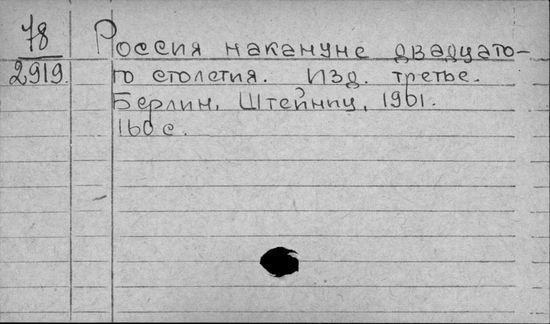 78
2919.
Россия накануне двадцато-
го столетия. Изд. третье.
Берлин, Штейниц, 1901.
160 с.